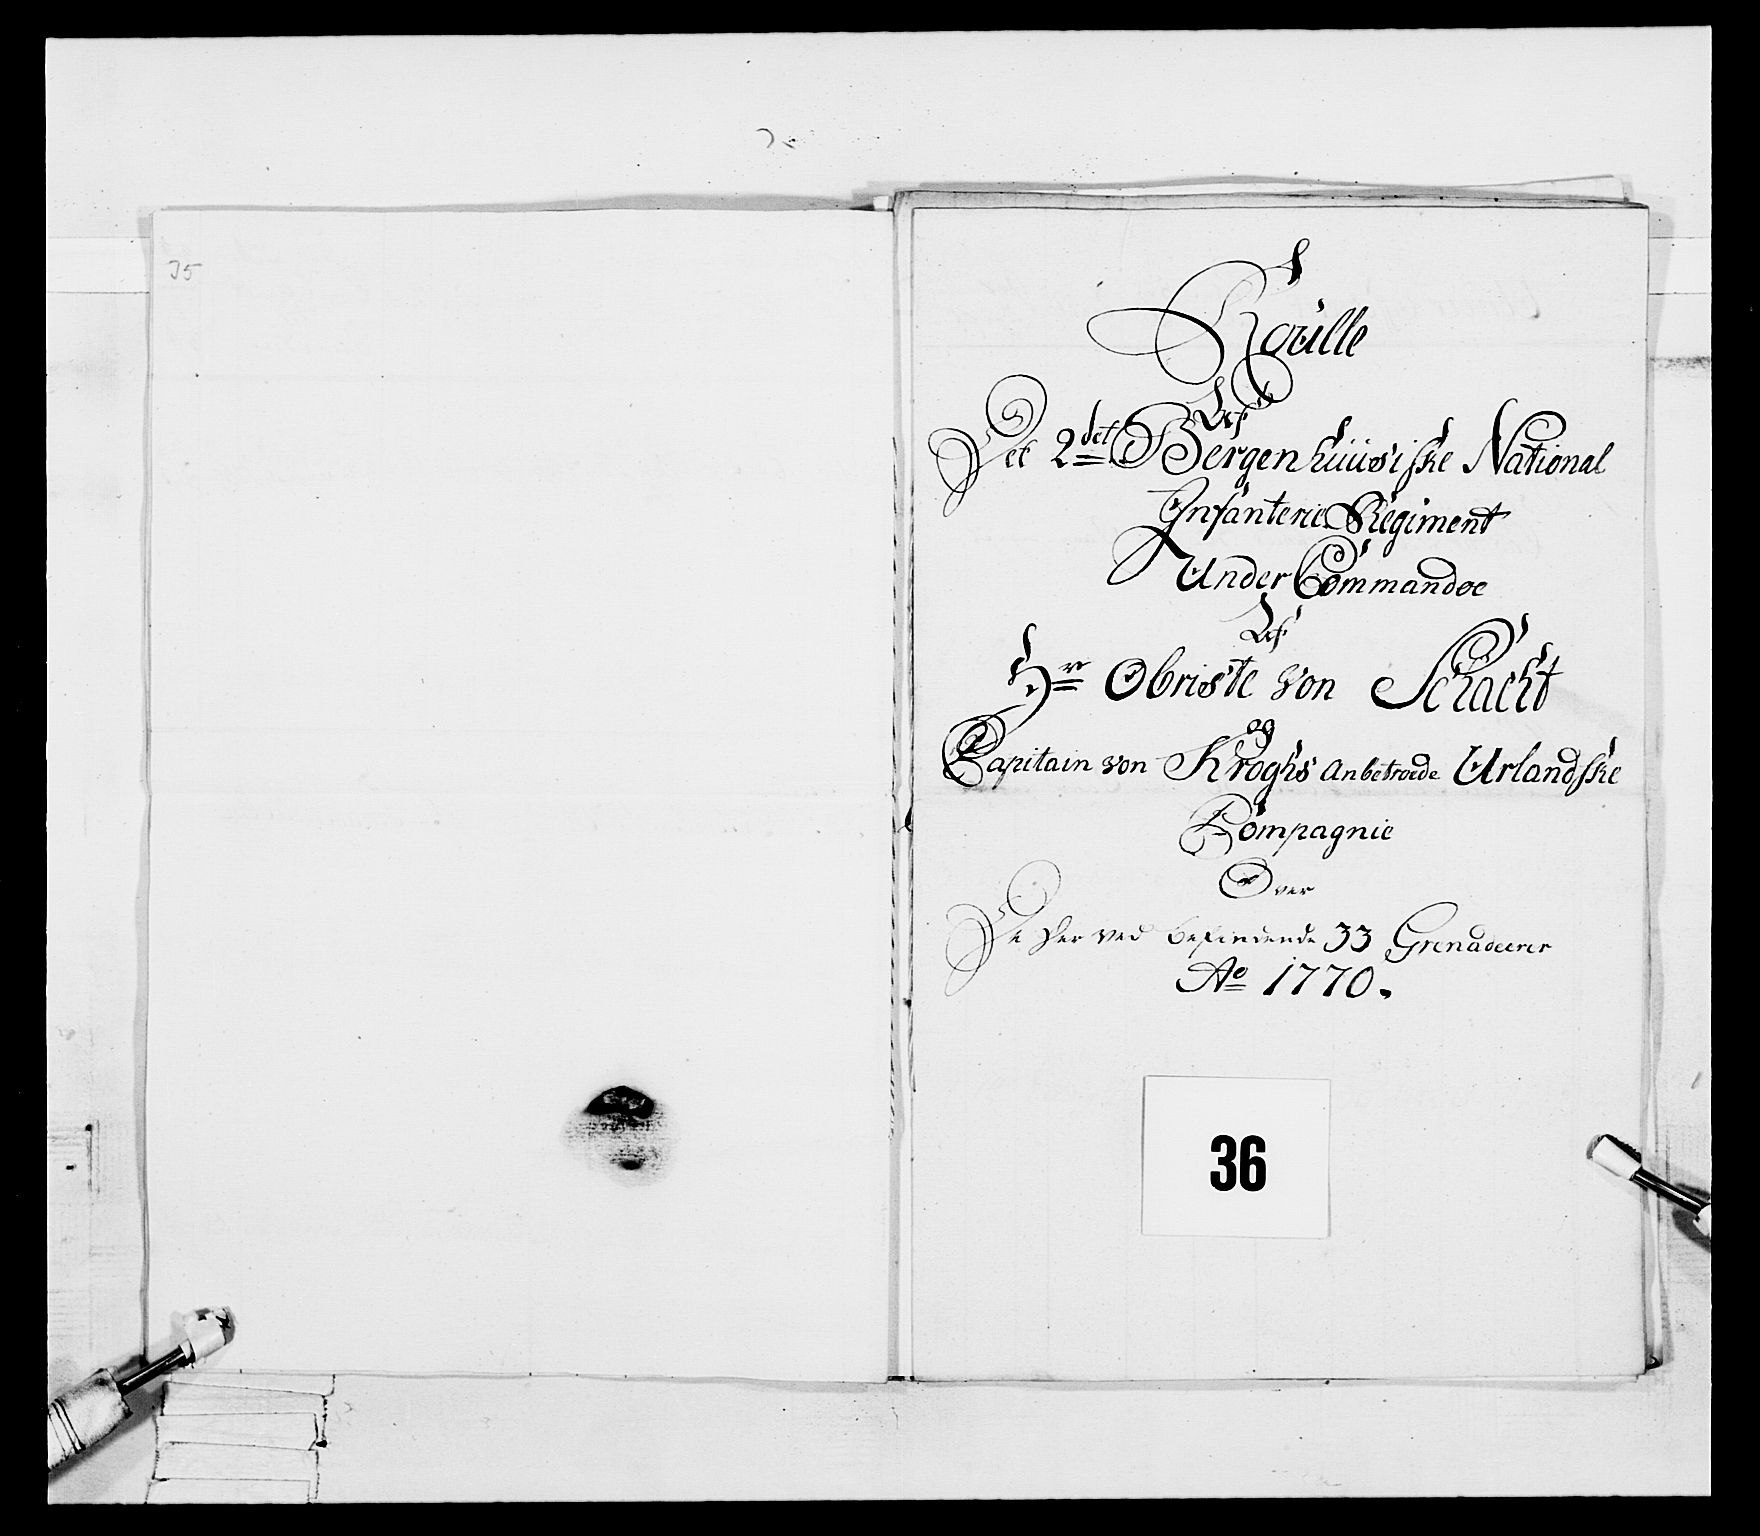 35
Roulle
Des
Det 2det Bergenhuusiske National
Infanterie Regiment
Under Commandoe
Des
Hr Obriste von Schacht
og
Capitain von Kroghs anbetroede Urlandske
Compagnie
Over
De her ved befindende 33 Grenadeerer
Ao 1770.
36